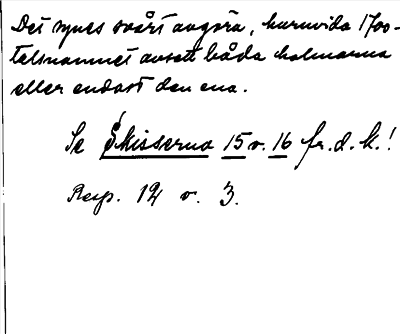 Det synes svårt avgöra, huruvida 1700-
talsnamnet avsett båda holmarna
eller endast den ena.
Se Skisserna 15 o. 16 fr. d. k.!
Resp. 12 o. 3.